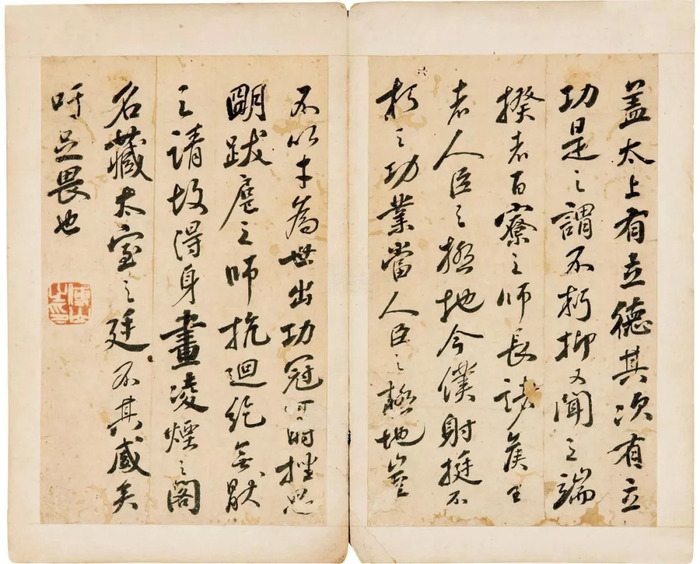 蓋太上有立德其次有立
功是之謂不朽抑又聞之端
揆者百寮之師長諸侯王
者人臣之極地今僕射挺不
朽之功業當人臣之極地豈
不以才為世出功冠一時挫思
明跋扈之師抗迴紇無厭
之請故得身畫凌煙之閣
名藏太室之廷不其盛矣
吁足畏也
傅山之印